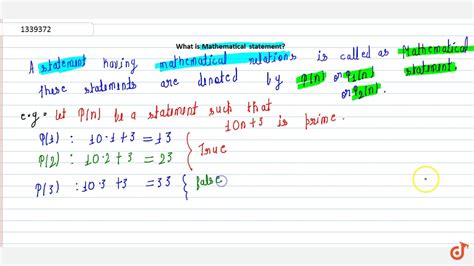 1339372
What is Mathematical statement?
A statement having mathematical relations is called as Mathematical statement.
these statements are denoted by P(n) or P1(n) or P2(n)
e.g = let P(n) be a statement such that
10n+3 is prime.
P(1) : 10.1+3 = 13
P(2) : 10.2+3 = 23
True
P(3) : 10.3 +3 = 33
false